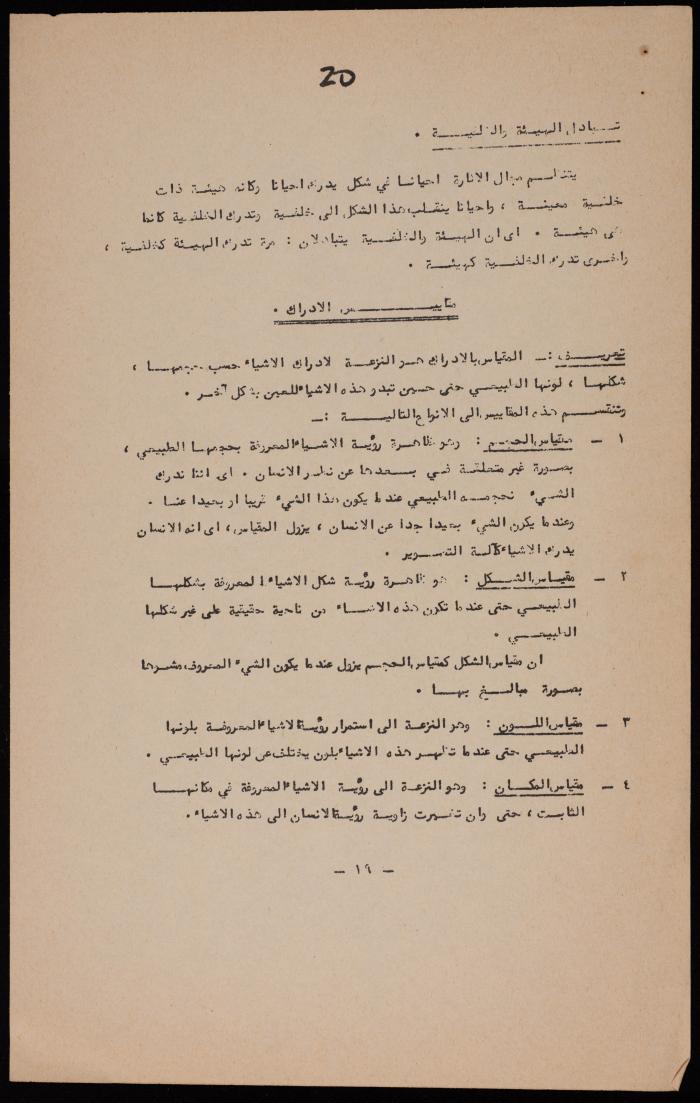 20
تبادل الهيئة والخلفية .
ينتظم مجال الاثارة احيانا في شكل يدرك احيانا وكانه هيئة ذات
خلفية معينة ، واحيانا ينقلب هذا الشكل الى خلفية وتدرك الخلفية كانما
هي هيئة . اى ان الهيئة والخلفية يتبادلان : مرة تدرك الهيئة كخلفية ،
واخرى تدرك الخلفية كهيئة .
مقاييس الادراك .
تعريف :ـ المقياس بالادراك هو النزعة لادراك الاشياء حسب حجمها ،
شكلها ، لونها الطبيعي حتى حين تبدو هذه الاشياء للعين بشكل آخر .
وتنقسم هذه المقاييس الى الانواع التالية :ـ
١ - مقياس الحجم : وهو ظاهرة رؤية الاشياء المعروفة بحجمها الطبيعي ،
بصورة غير متعلقة في بعدها عن نظر الانسان . اى اننا ندرك
الشيء بحجمه الطبيعي عندما يكون هذا الشيء قريبا او بعيدا عنا .
وعندما يكون الشيء بعيدا جدا عن الانسان ، يزول المقياس ، اى انه الانسان
يدرك الاشياء كآلة التصوير .
٢ - مقياس الشكل : هو ظاهرة رؤية شكل الاشياء المعروفة بشكلها
الطبيعي حتى عندما تكون هذه الاشياء من ناحية حقيقية على غير شكلها
الطبيعي .
ان مقياس الشكل كمقياس الحجم يزول عندما يكون الشيء المعروف مشوها
بصورة مبالغ بها .
٣ - مقياس اللون : وهو النزعة الى استمرار رؤية الاشياء المعروفة بلونها
الطبيعي حتى عندما تظهر هذه الاشياء بلون يختلف عن لونها الطبيعي .
٤ - مقياس المكان : وهو النزعة الى رؤية الاشياء المعروفة في مكانها
الثابت ، حتى وان تغيرت زاوية رؤية الانسان الى هذه الاشياء .
- ١٩ -